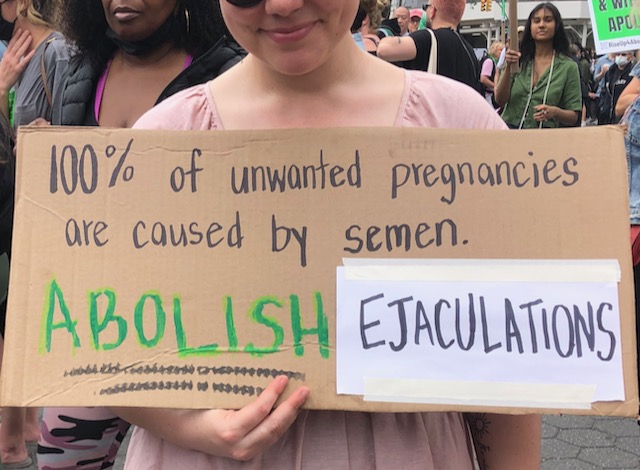 & W
APO
100% of unwanted pregnancies
are caused by semen.
ABOLISH EJACULATIONS